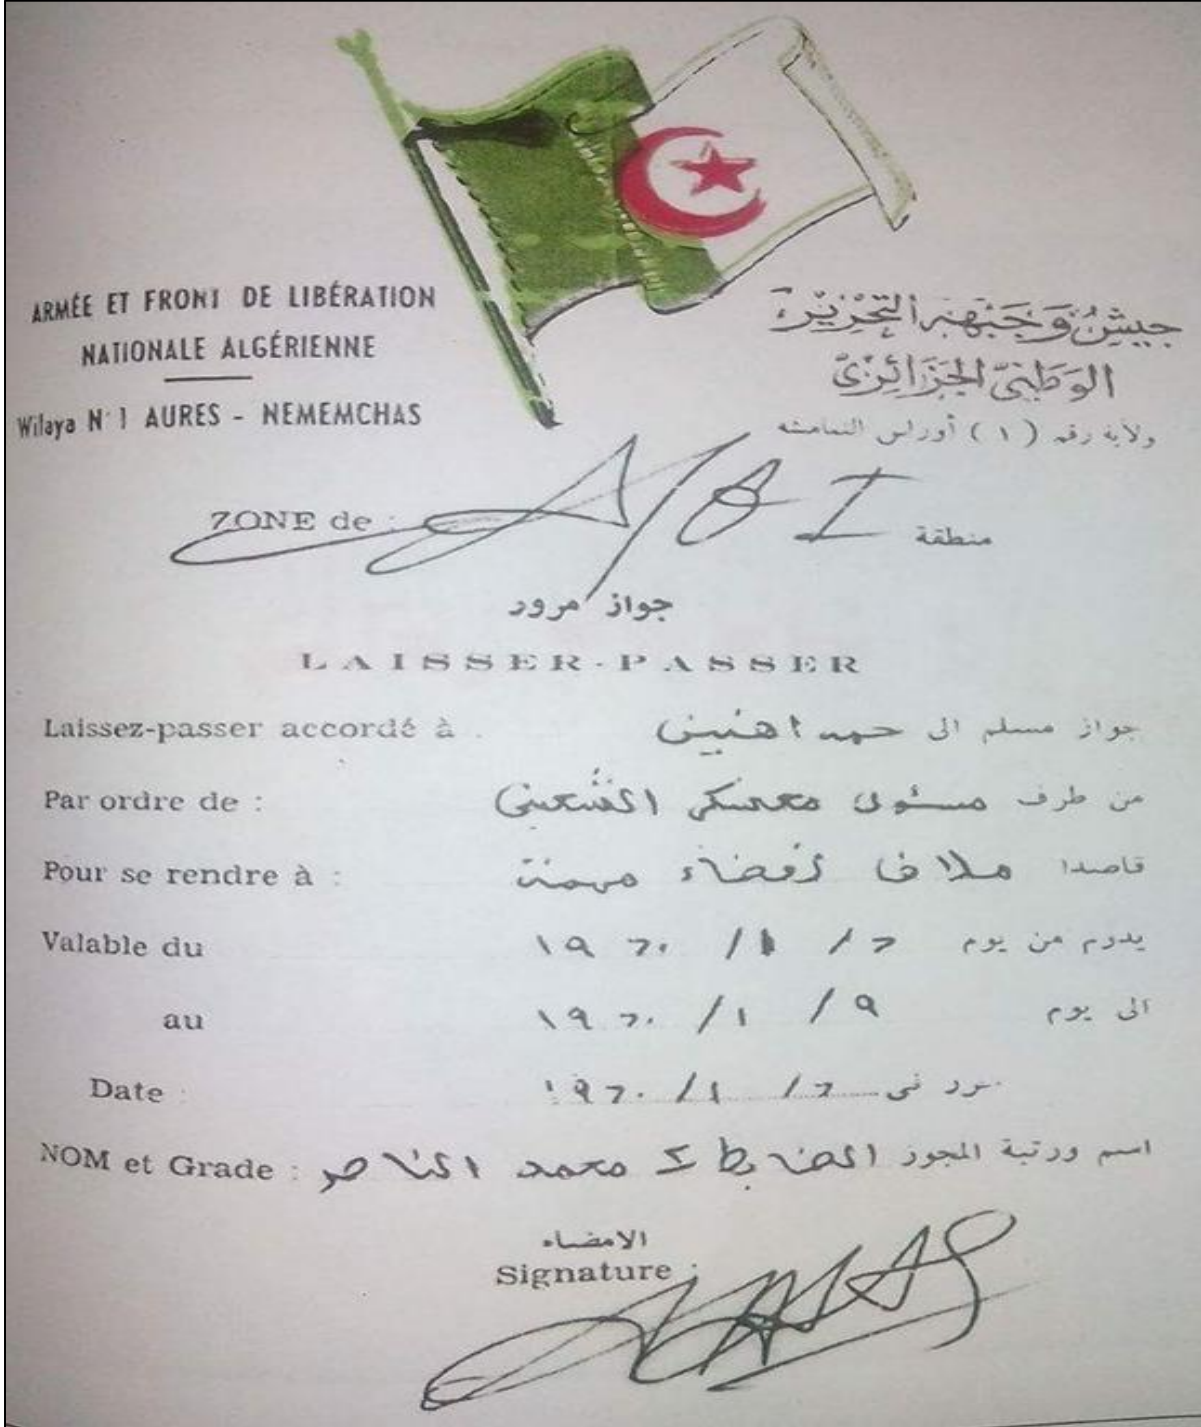 ARMÉE ET FRONT DE LIBÉRATION
NATIONALE ALGÉRIENNE
Wilaya N° 1 AURES - NEMEMCHAS
جيش وجبهة التحرير
الوطني الجزائري
ولاية رقم ( ١ ) أوراس النمامشه
ZONE de : منطقة
جواز مرور
LAISSER-PASSER
Laissez-passer accordé à . جواز مسلم الى حمه اهنين
Par ordre de : من طرف مسئول معسكر
Pour se rendre à : قاصدا ملاق لقضاء مهمة
Valable du يدوم من يوم ٦ / ١ / ١٩٦٠
au الى يوم ٩ / ١ / ١٩٦٠
Date : حرر في ٦ / ١ / ١٩٦٠
NOM et Grade : اسم ورتبة المجوز الضابط ٢ محمد الناصر
الامضاء
Signature :